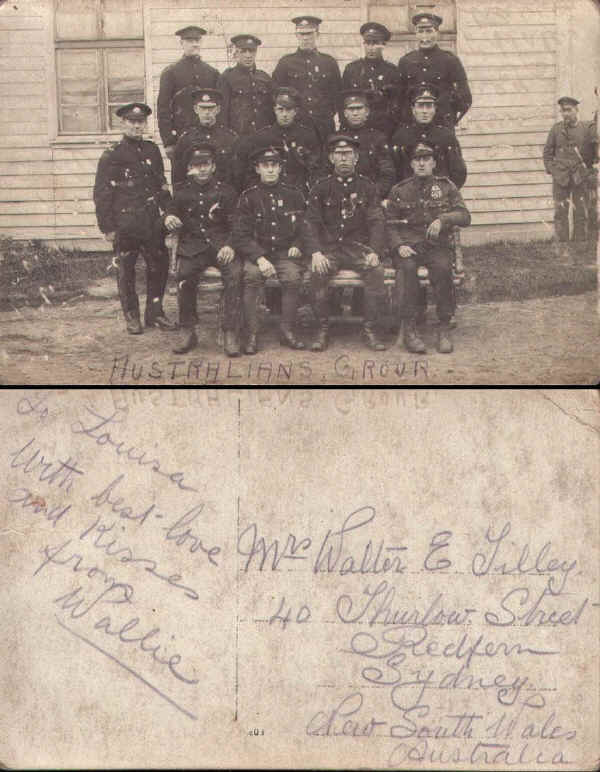 AUSTRALIANS. GROUP.
To Louisa
With best love
and Kisses
from
Wallie.
Mrs Walter E Tilley.
40 Thurlow. Street
Redfern
Sydney.
New South Wales
Australia